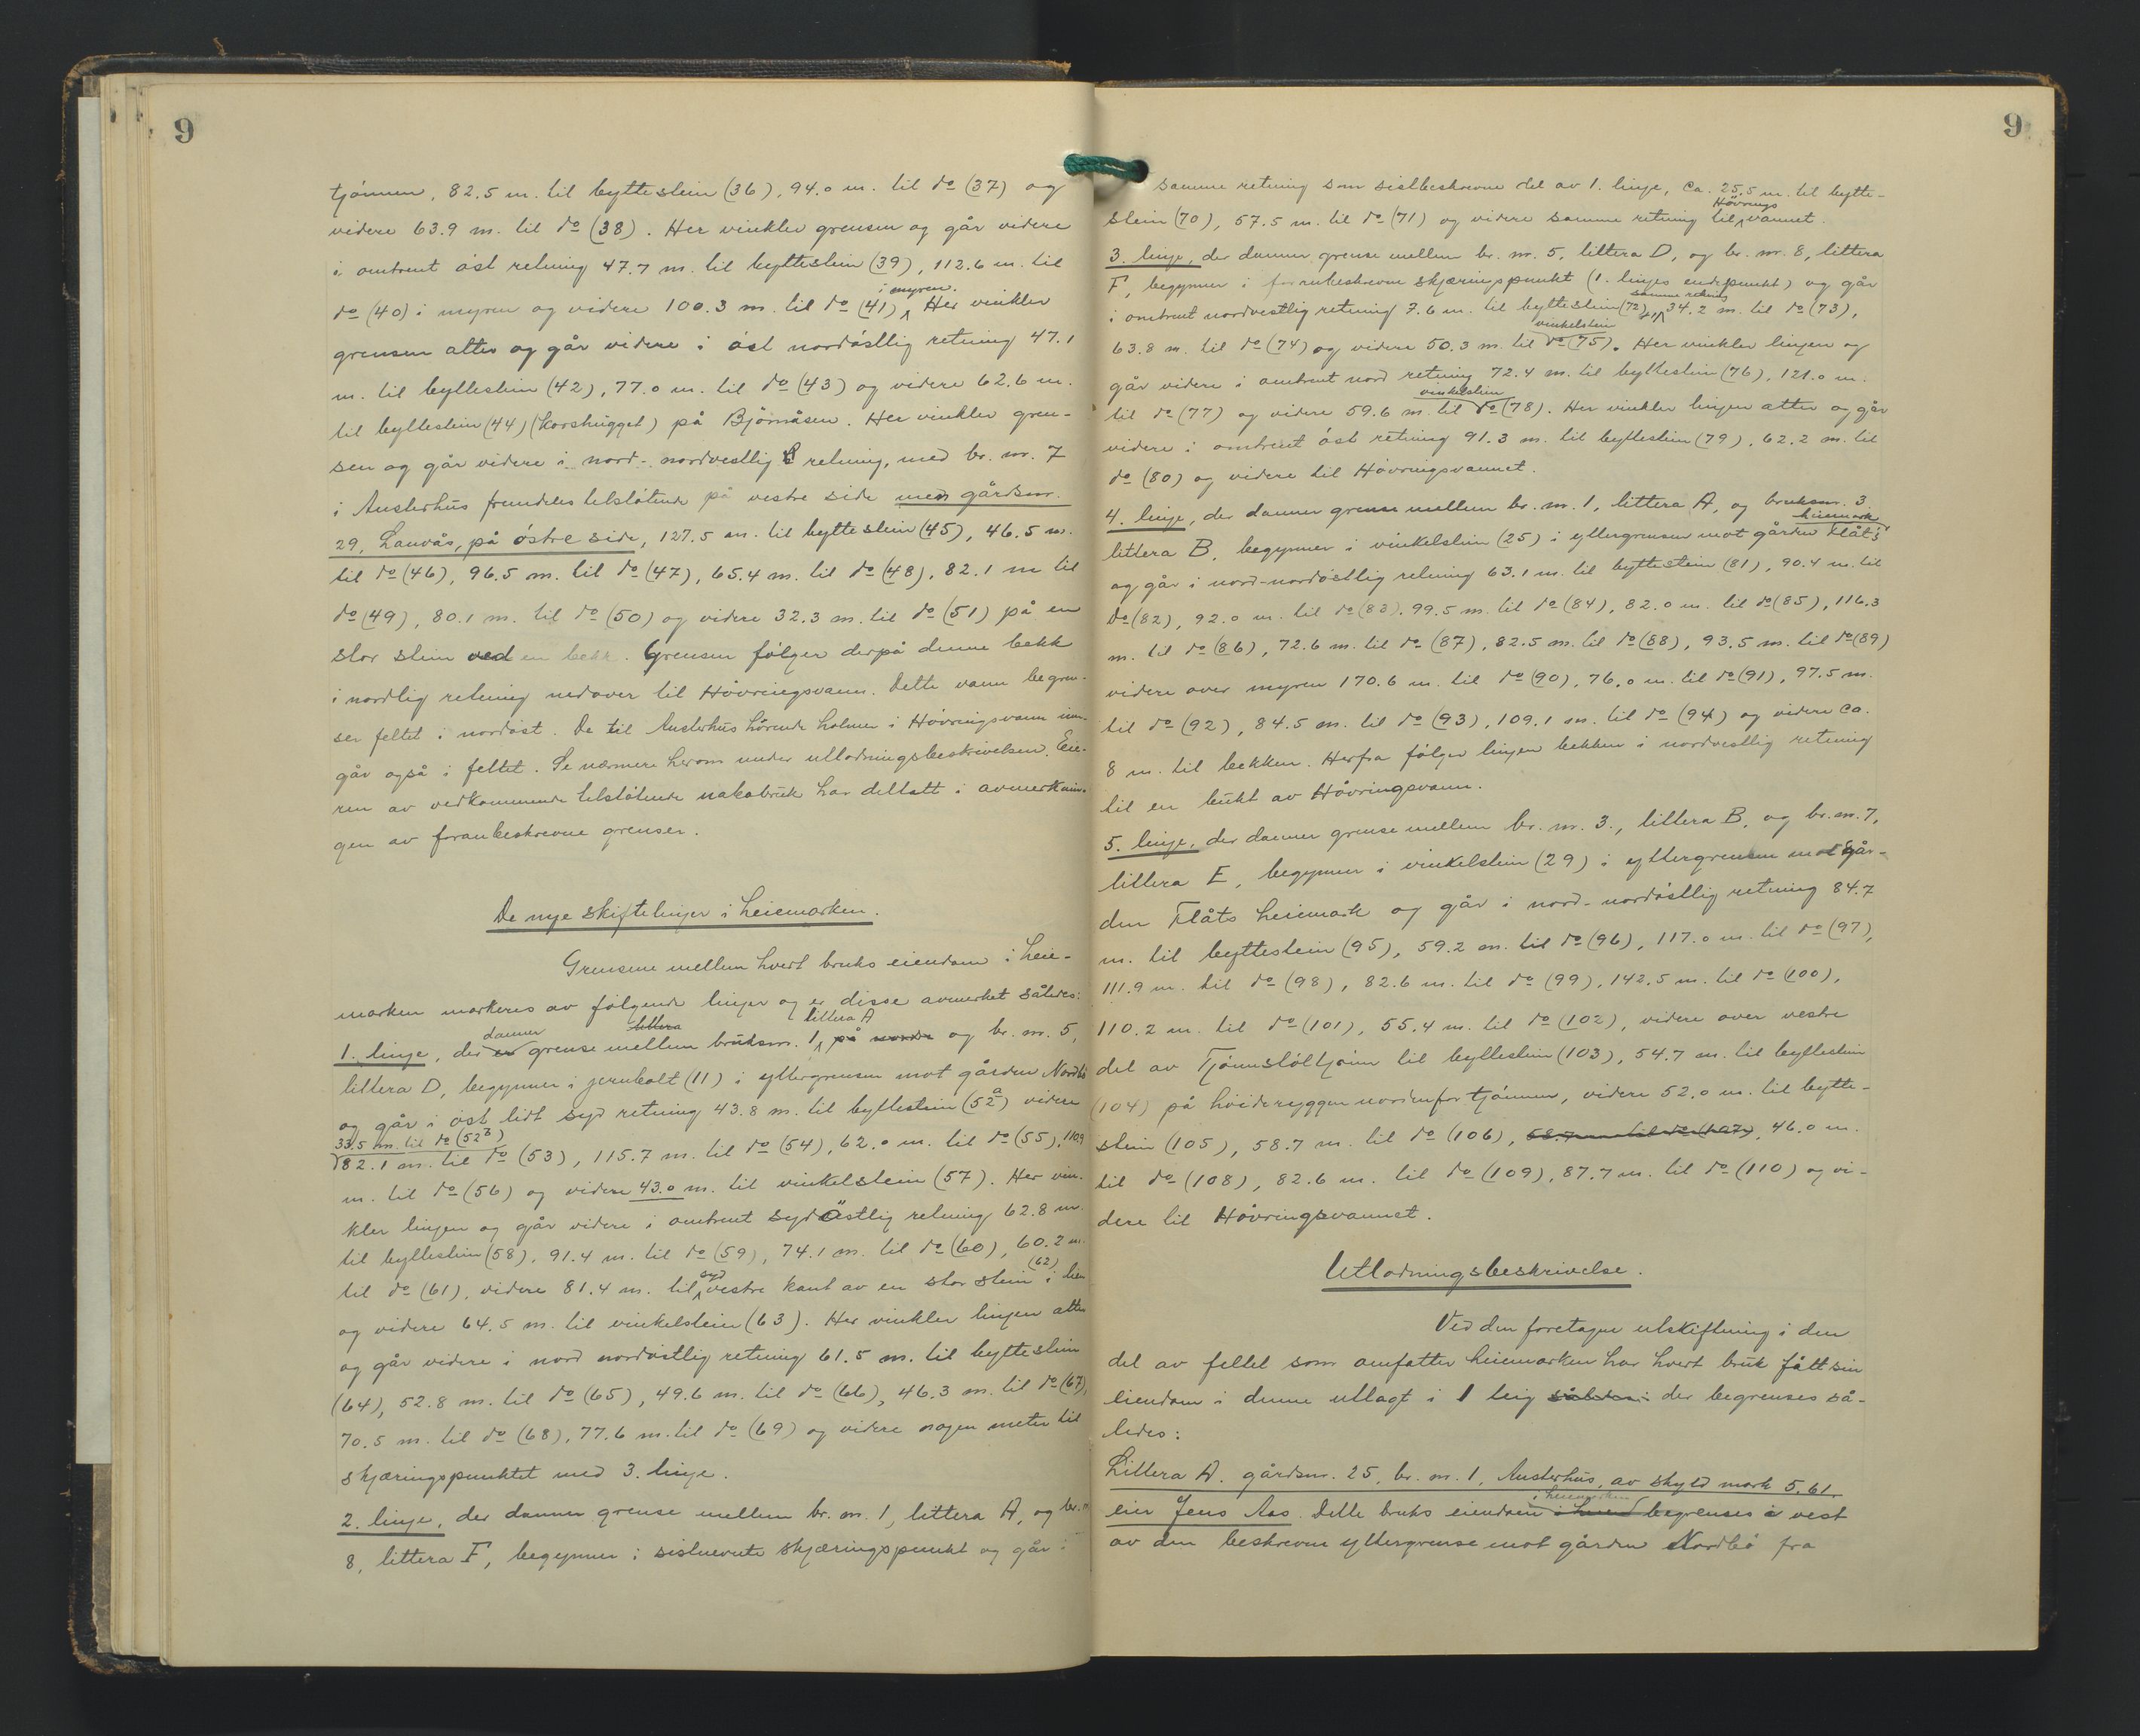 9
tjönnen, 82.5 m. til byttestein (36), 94.0 m. til do (37) og
videre 63.9 m. til do (38). Her vinkler grensen og går videre
i omtrent öst retning 47.7 m. til byttestein (39), 112.6 m. til
do (40) i myren og videre 100.3 m. til do (41) i myren. Her vinkler
grensen atter og går videre i öst nordöstlig retning 47.1
m. til byttestein (42), 77.0 m. til do (43) og videre 62.6 m.
til byttestein (44) (korshugget) på Björnåsen. Her vinkler gren-
sen og går videre i nord-nordvestlig retning, med br. nr. 7
i Austerhus fremdeles tilstötende på vestre side men gårdsnr.
29, Lauvås, på östre side, 127.5 m. til byttestein (45), 46.5 m.
til do (46), 96.5 m. til do (47), 65.4 m. til do (48), 82.1 m til
do (49), 80.1 m. til do (50) og videre 32.3 m. til do (51) på en
stor stein ved en bekk. Grensen fölger derpå denne bekk
i nordlig retning nedover til Hövringsvann. Dette vann begren-
ser feltet i nordöst. De til Austerhus hörende holmer i Hövringsvann inn-
går også i feltet. Se nærmere herom under utlodningsbeskrivelsen. Eie-
ren av vedkommende tilstötende nabobruk har deltatt i avmerknin-
gen av foranbeskrevne grenser.
De nye skiftelinjer i heiemarken.
Grensene mellem hvert bruks eiendom i heie-
marken markeres av fölgende linjer og er disse avmerket således:
1. linje, der er danner grense mellem bruksnr. 1, littera littera A på nordre og br. nr. 5,
littera D, begynner i jernbolt (11) i yttergrensen mot gården Nordbö
og går i öst lidt syd retning 43.8 m. til byttestein (52a) videre
33.5 m. til do (52b)
82.1 m. til do (53), 115.7 m. til do (54), 62.0 m. til do (55), 110.9
m. til do (56) og videre 43.0 m. til vinkelstein (57). Her vin-
kler linjen og går videre i omtrent sydöstlig retning 62.8 m.
til byttestein (58), 91.4 m. til do (59), 74.1 m. til do (60), 60.2 m.
til do (61), videre 81.4 m. til syd vestre kant av en stor stein (62) i lien
og videre 64.5 m. til vinkelstein (63). Her vinkler linjen atter
og går videre i nord nordöstlig retning 61.5 m. til byttestein
(64), 52.8 m. til do (65), 49.6 m. til do (66), 46.3 m. til do (67),
70.5 m. til do (68), 77.6 m. til do (69) og videre nogen meter til
skjæringspunktet med 3. linje.
2. linje, der danner grense mellem br. nr. 1, littera A, og br. nr
8, littera F, begynner i sistnevnte skjæringspunkt og går i
9
samme retning som sistbeskrevne del av 1. linje, ca. 25.5 m. til bytte-
stein (70), 57.5 m. til do (71) og videre samme retning til Hövrings vannet.
3. linje, der danner grense mellem br. nr. 5, littera D, og br. nr. 8, littera
F, begynner i foranbeskrevne skjæringspunkt (1. linjes endepunkt) og går
i omtrent nordvestlig retning 7.6 m. til byttestein (72), samme retning 34.2 m. til do (73),
63.8 m. til do (74) og videre 50.3 m. til do vinkelstein (75). Her vinkler linjen og
går videre i omtrent nord retning 72.4 m. til byttestein (76), 121.0 m.
til do (77) og videre 59.6 m. til do vinkelstein (78). Her vinkler linjen atter og går
videre i omtrent öst retning 91.3 m. til byttestein (79), 62.2 m. til
do (80) og videre til Hövringsvannet.
4. linje, der danner grense mellem br. nr. 1, littera A, og bruksnr. 3,
littera B, begynner i vinkelstein (25) i yttergrensen mot gården Flåt's heiemark
og går i nord-nordöstlig retning 63.1 m. til byttestein (81), 90.4 m. til
do (82), 92.0 m. til do (83), 99.5 m. til do (84), 82.0 m. til do (85), 116.3
m. til do (86), 72.6 m. til do (87), 82.5 m. til do (88), 93.5 m. til do (89)
videre over myren 170.6 m. til do (90), 76.0 m. til do (91), 97.5 m.
til do (92), 84.5 m. til do (93), 109.1 m. til do (94) og videre ca.
8 m. til bekken. Herfra fölger linjen bekken i nordvestlig retning
til en bukt av Hövringsvann.
5. linje, der danner grense mellem br. nr. 3., littera B, og br. nr. 7,
littera E, begynner i vinkelstein (29) i yttergrensen mot går-
den Flåts heiemark og går i nord-nordöstlig retning 84.7
m. til byttestein (95), 59.2 m. til do (96), 117.0 m. til do (97),
111.9 m. til do (98), 82.6 m. til do (99), 142.5 m. til do (100),
110.2 m. til do (101), 55.4 m. til do (102), videre over vestre
del av Tjönnstöltjönn til byttestein (103), 54.7 m. til byttestein
(104) på höideryggen nordenfor tjönnen, videre 52.0 m. til bytte-
stein (105), 58.7 m. til do (106), 58.7 m. til do (107), 46.0 m.
til do (108), 82.6 m. til do (109), 87.7 m. til do (110) og vi-
dere til Hövringsvannet.
Utlodningsbeskrivelse.
Ved den foretagne utskiftning i den
del av feltet som omfatter heiemarken har hvert bruk fått sin
eiendom i denne utlagt i 1 teig således: der begrenses så-
ledes:
Littera A. gårdsnr. 25, br. nr. 1, Austerhus, av skyld mark 5.61,
eier Jens Aas. Dette bruks eiendom i heiemarken begrenses i vest
av den beskrevne yttergrense mot gården Nordbö fra